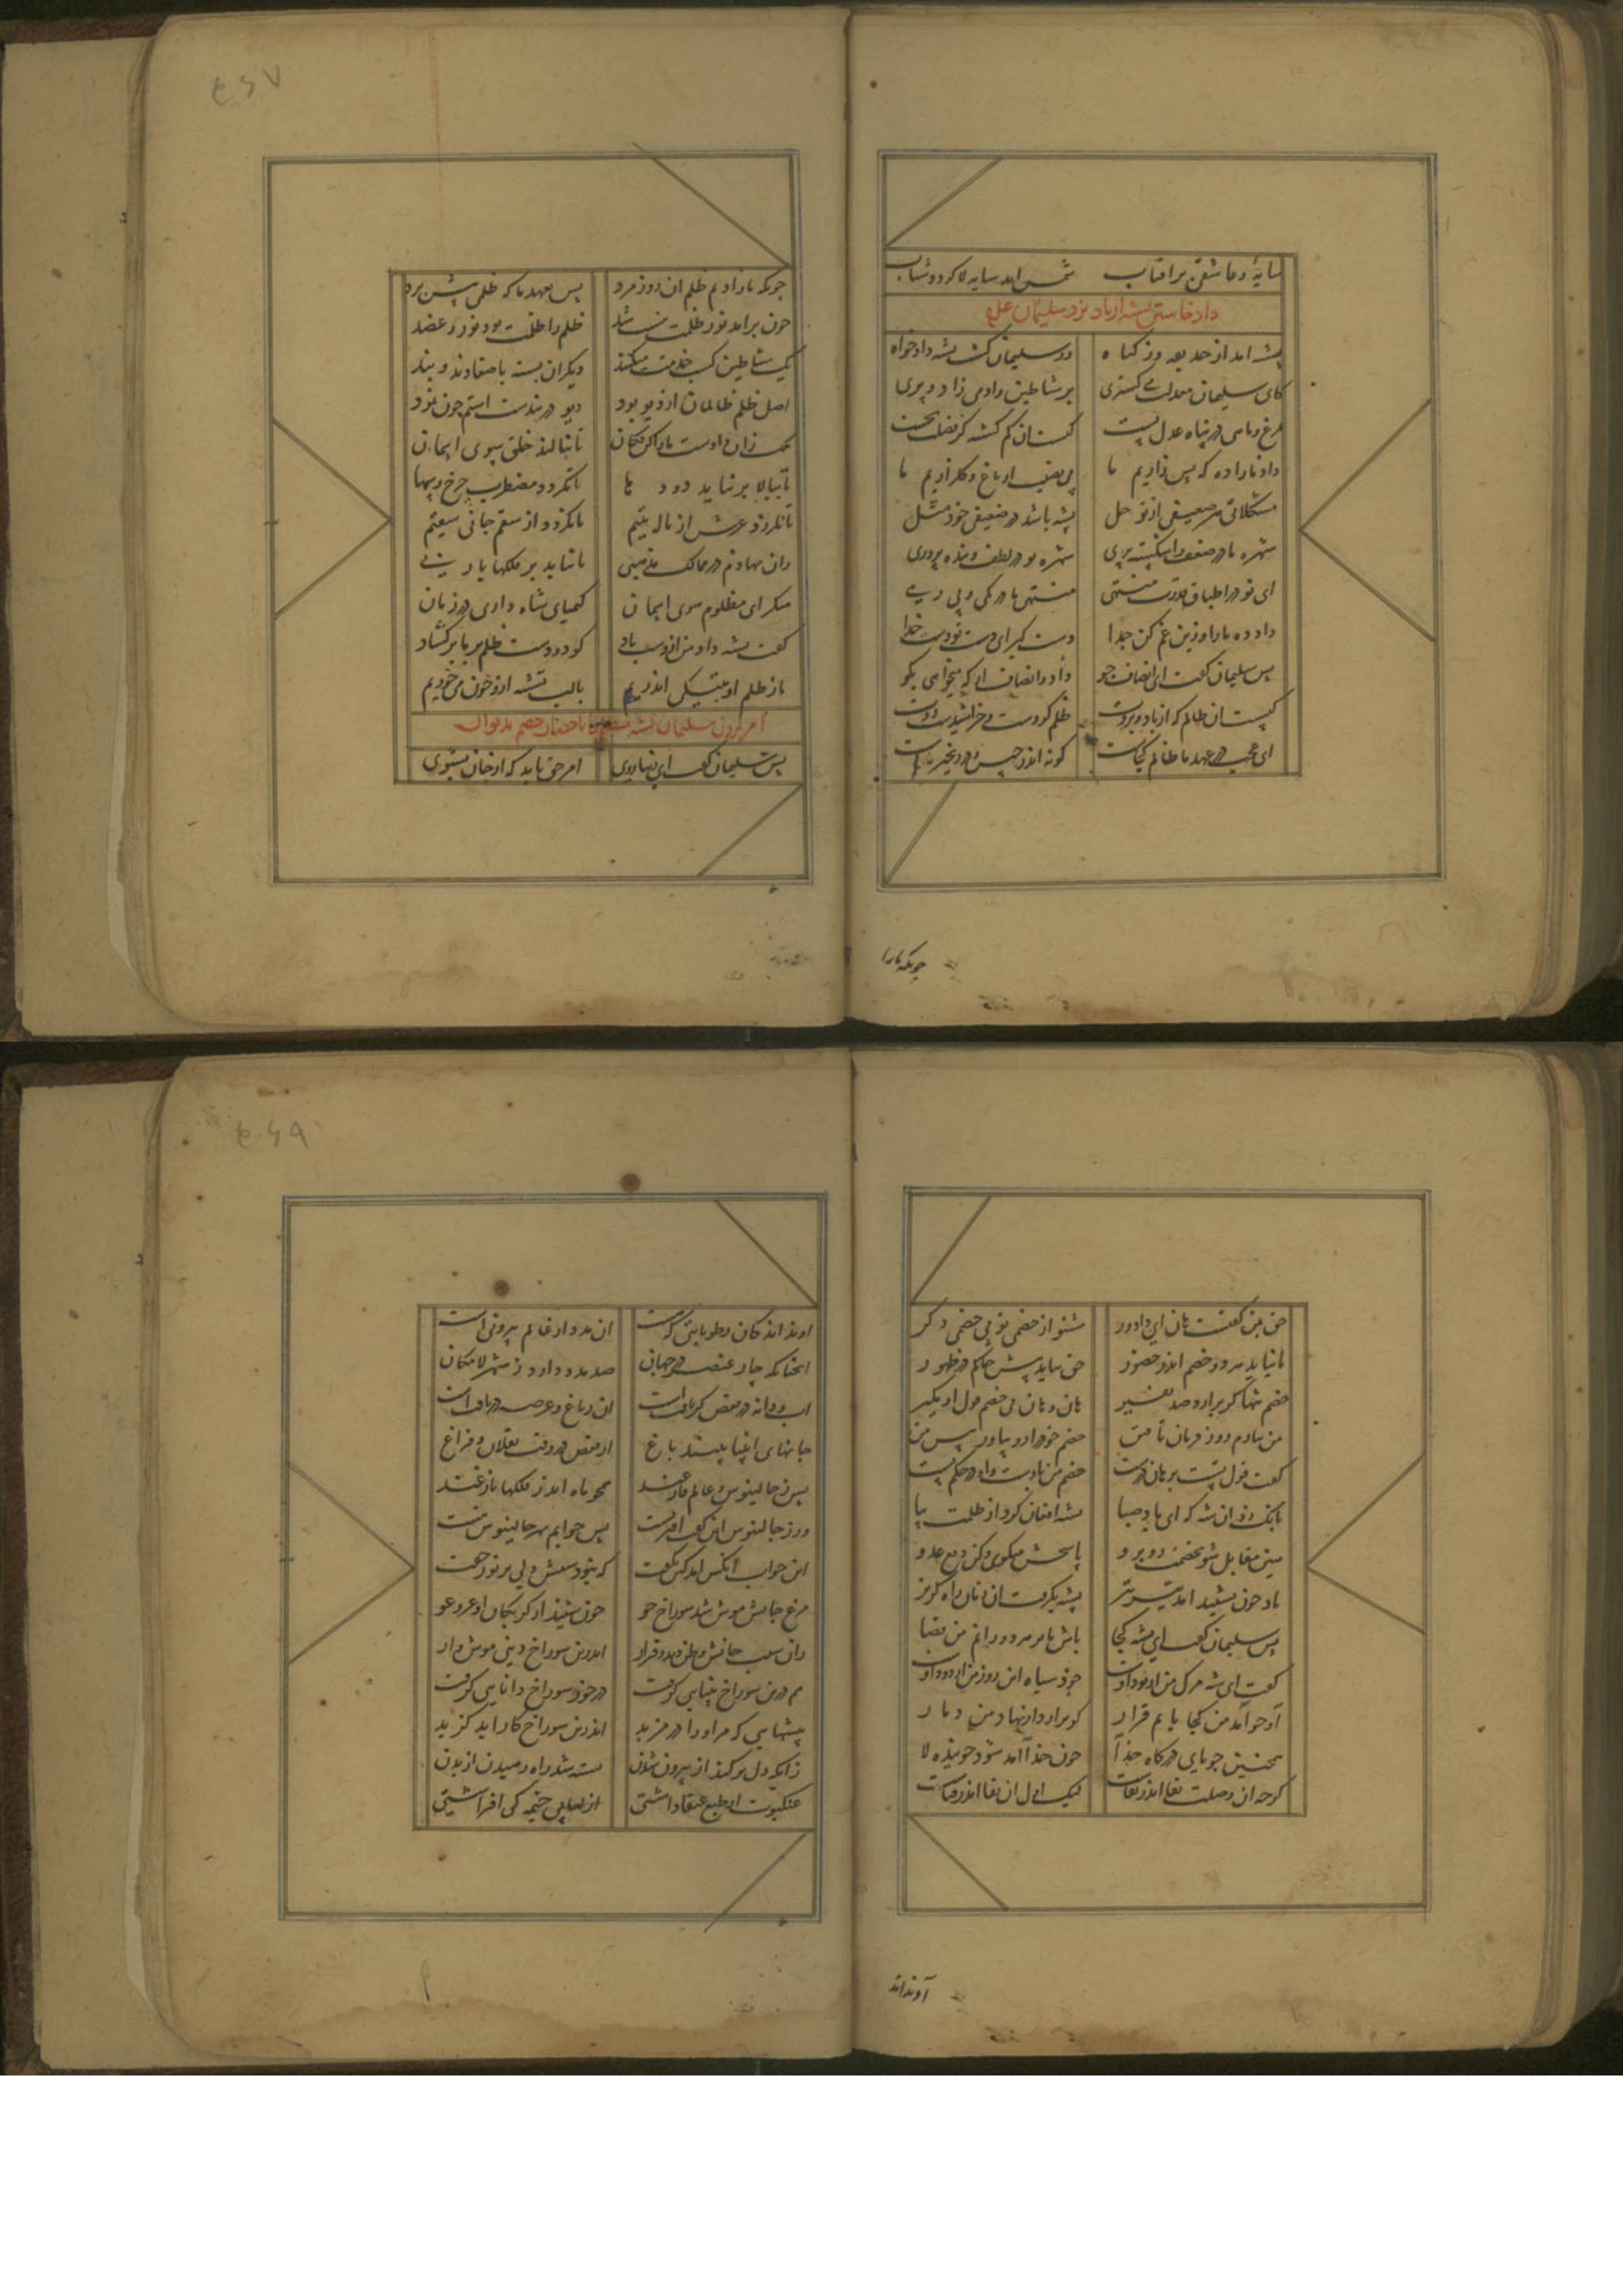 سایهٔ و عاشقی بر افتاب شمس امد سایه لا کردد شتاب
داد خاستن پشه از باد نزد سلیمان علیه
پشه امد از حدیقه وز کیاه وز سلیمان کشت پشه دادخواه
کای سلیمان معدلت می کستری بر شیاطین وادمی زاد و پری
مرغ و ماهی در پناه عدل تست کیست ان کم کشته کز فضلت نجست
داد ده ما را که بس زاریم ما بی نصیب از باغ و کلزاریم ما
مشکلات هر ضعیفی از تو حل پشه باشد در ضعیفی خود مثل
شهره ما در ضعف و اشکسته پری شهره تو در لطف و بنده پروری
ای تو در اطباق قدرت منتهی منتهی ما در کمی و بی رهی
داد ده ما را وزین غم کن جدا دست کیر ای دست تو دست خدا
پس سلیمان کفت ای انصاف جو داد و انصاف از که میخواهی بکو
کیست ان ظالم که از باد و بروت ظلم کردست و خراشیدست روت
ای عجب در عهد ما ظالم کجاست کو نه اندر حبس و در زنجیر ماست
چونکه مارا
چونکه ما زادیم ظلم ان روز مرد پس بعهد ما که ظلمی پیش برد
چون برامد نور ظلمت نیست شد ظلم را ظلمت بود نور و عضد
یک شیاطین کسب خدمت میکند دیکران بسته باصفادند و بند
اصل ظلم ظالمان از دیو بود دیو در بندست استم چون نمود
ملک زان دادست ما را کن فکان تا ننالد خلق سوی اسمان
تا ببالا بر نیاید دود ها تا نکردد مضطرب چرخ و سها
تا نلرزد عرش از ناله یتیم تا نکردد از ستم جانی سقیم
زان نهادیم در ممالک مذهبی تا نیاید بر فلکها یا ربی
منکر ای مظلوم سوی اسمان کسمانی شاه داری در زمان
کفت پشه داد من از دست باد کو دو دست ظلم بر ما بر کشاد
ما ز ظلم او بتنکی اندریم با لب بسته ازو خون می خوریم
امر کردن سلیمان پشه متظلم را باحضار خصم بدیوان
پس سلیمان کفت ای زیبا دوی امر حق باید که از جان بشنوی
حق بمن کفتست هان ای دادور مشنو از خصمی تو بی خصمی دکر
تا نیاید هر دو خصم اندر حضور حق نیاید پیش حاکم در ظهور
خصم تنها کر برارد صد نفیر هان و هان بی خصم قول او مکیر
من نیارم رو ز فرمان تافتن خصم خود را رو بیاور پیش من
کفت قول تست برهان درست خصم من بادست و او در حکم تست
بانک زد ان شه که ای باد صبا پشه افغان کرد از ظلمت بیا
هین مقابل شو بخصمت روبرو پاسخش میکوی و کن دفع عدو
باد چون بشنید امد تیز تیز پشه بکرفت ان زمان راه کریز
پس سلیمان کفت ای پشه کجا باش تا بر هر دو رانم من قضا
کفت ای شه مرک من از بود اوست خود سیاه این روز من از دود اوست
او چو آمد من کجا یابم قرار کو برارد از نهاد من دمار
همچنین جویای درکاه خدآ چون خدآ آمد شود جوینده لا
کرچه ان وصلت بقا اندر بقاست لیک اول ان بقا اندر فناست
آوند اند
اوند اند کان رطوباتی کهست ان مدد از عالم بیرونی است
انچنانکه چار عنصر در جهان صد مدد دارد ز شهر لامکان
اب و دانه در قفص کر یافت است ان ز باغ و عرصه دریافت است
جانهای انبیا بینند باغ از قفص در وقت نقلان و فراغ
پس ز جالینوس و عالم فارغند همچو ماه اندر فلکها بازغند
ور ز جالینوس این کفت افتریست پس جوابم بهر جالینوس نیست
این جواب انکس امد کین بکفت که نبودستش دلی پر نور جفت
مرغ جانش موش شد سوراخ جو چون شنید از کربکان او عرجو
زان سبب جانش وطن دید و قرار اندرین سوراخ دنیی موش وار
هم درین سوراخ بنایی کرفت در خور سوراخ دانایی کرفت
پیشهایی که مر او را در مزید اندرین سوراخ کار اید کزید
زانکه دل بر کند از بیرون شدن بسته شد راه رهیدن از بدن
عنکبوت ار طبع عنقا داشتی از لعابی خیمه کی افراشتی